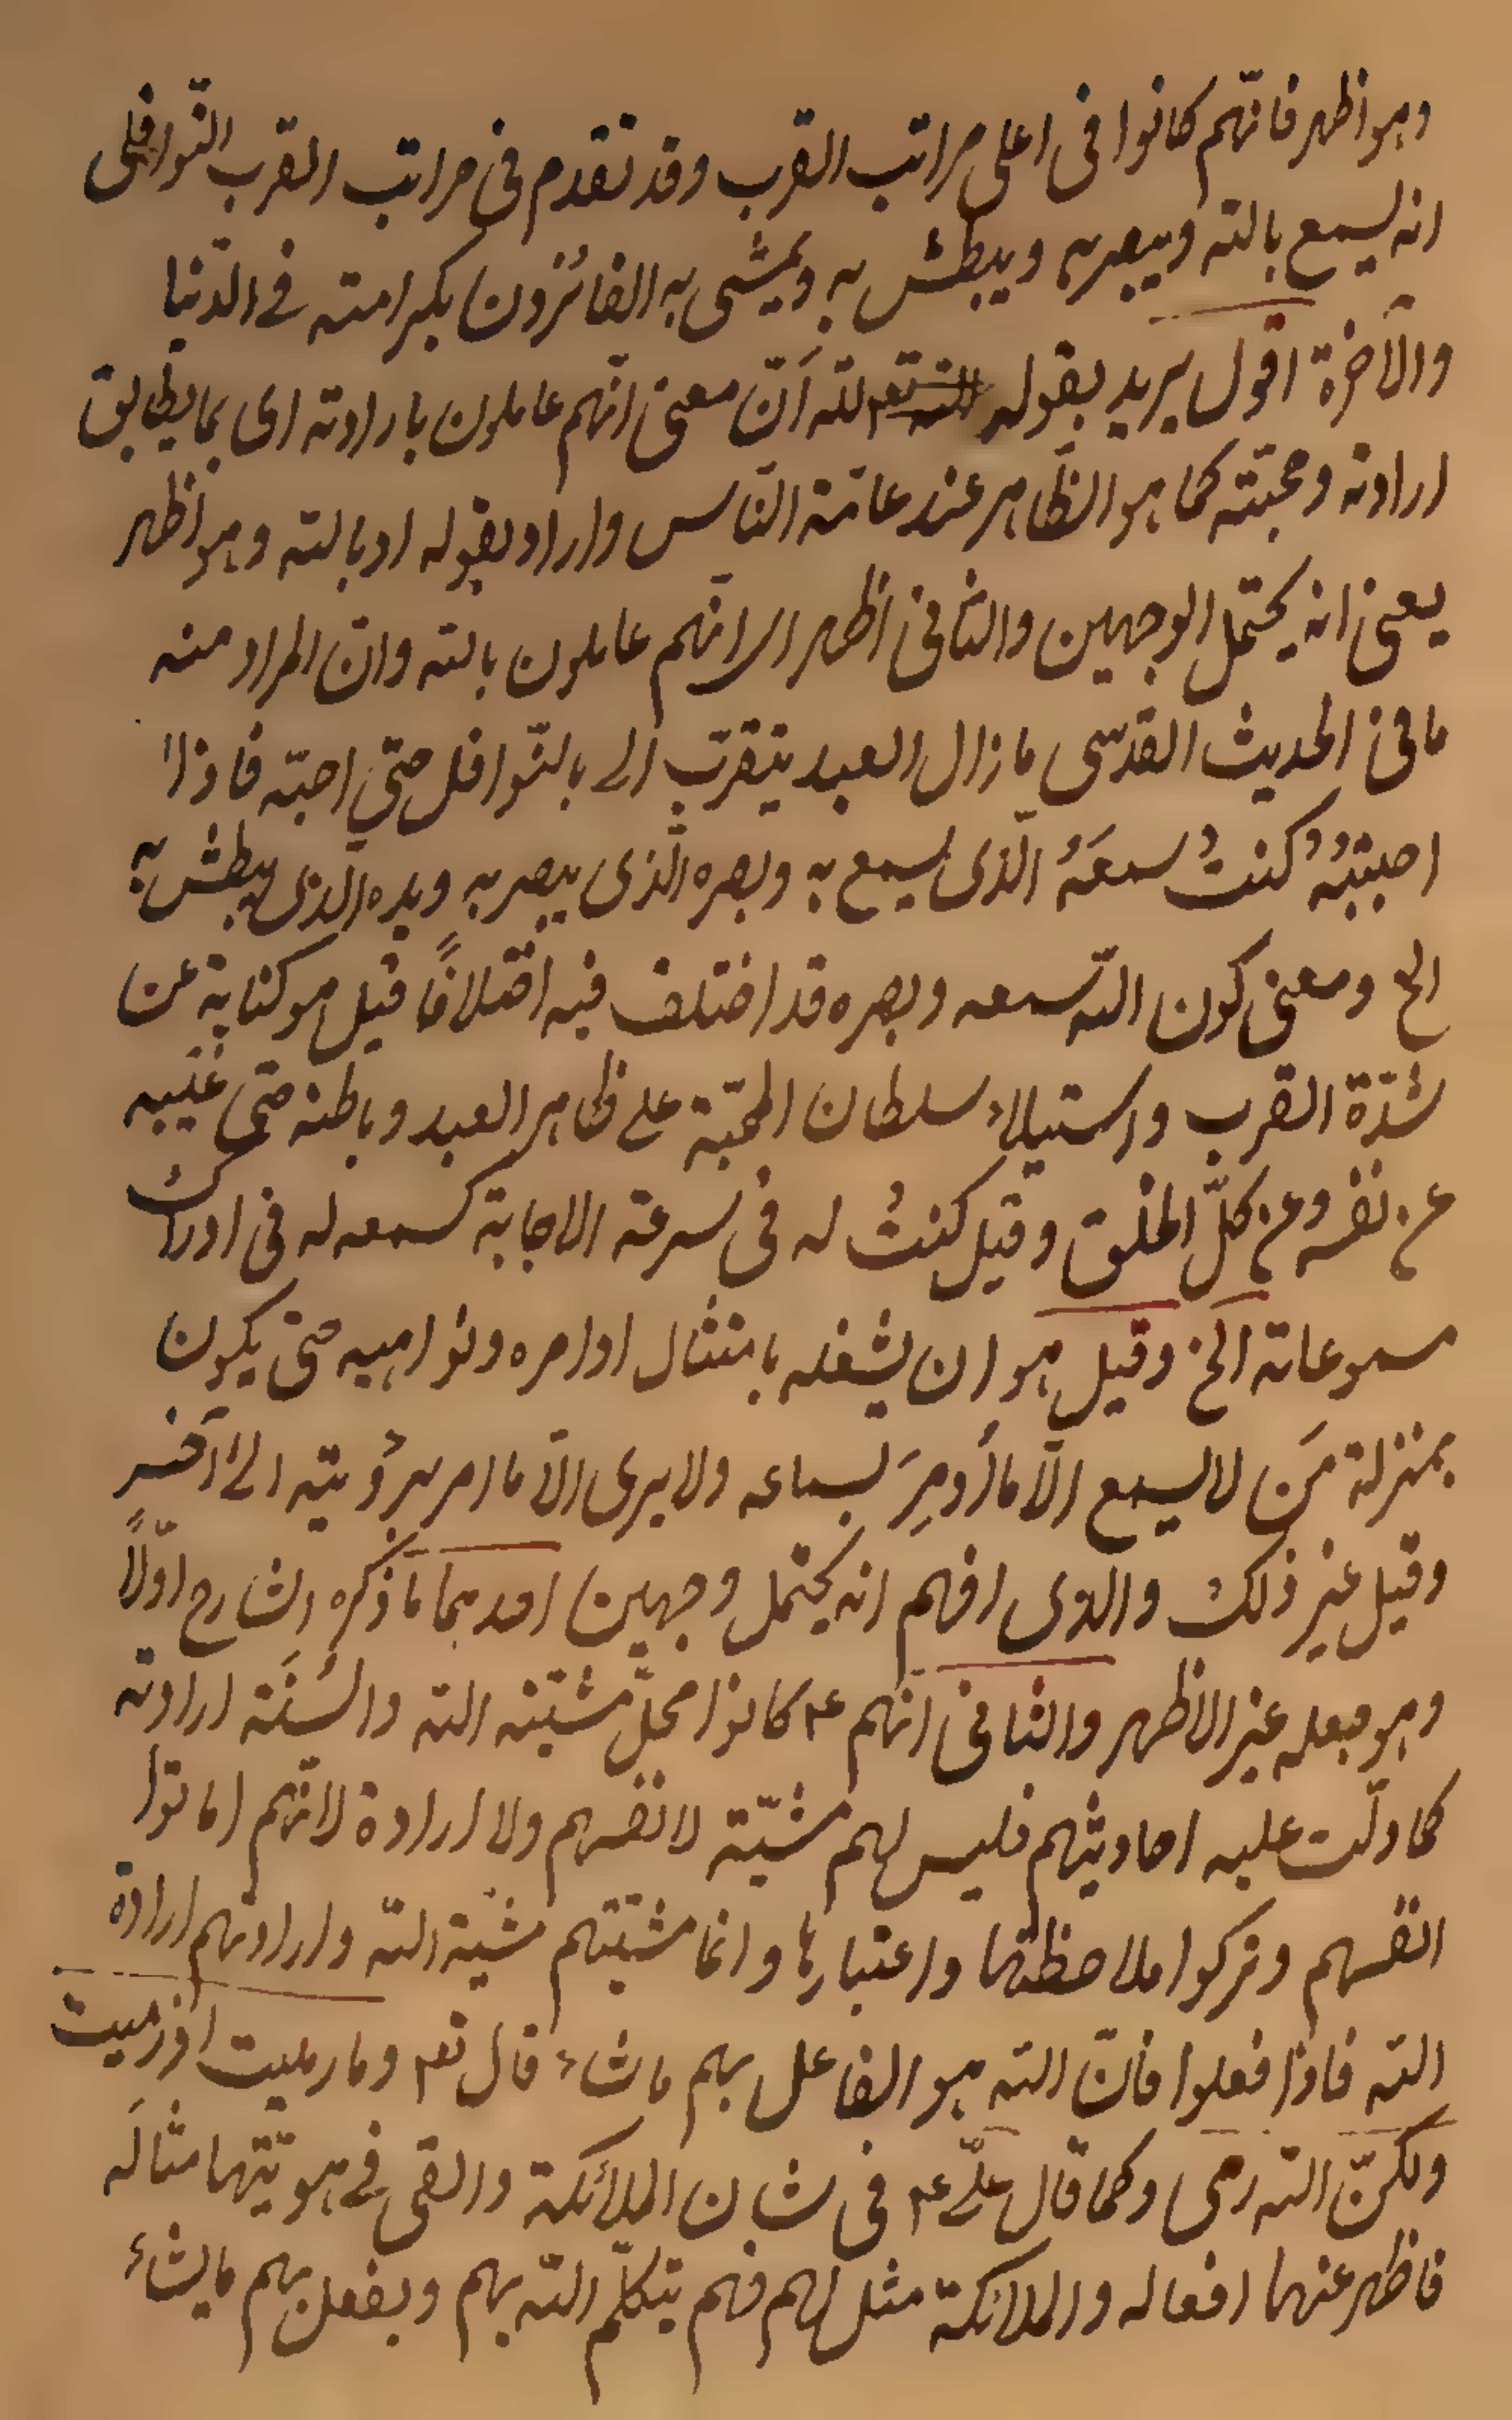 وهو اظهر فانّهم كانوا فى اعلى مراتب القرب وقد تقدم فى مراتب القرب النّوافلى
انه يسمع بالله ويبصر به ويبطش به ويمشى به الفائزون بكرامته فى الدّنيا
والآخرة اقول يريد بقوله لله اَنّ معنى انّهم عاملون بارادته اى بما يطابق
ارادته ومحبّته كما هو الظّاهر عند عامّة النّاس واراد بقوله او بالله وهو اظهر
يعنى انه يحتمل الوجهين والثانى اظهر اى انّهم عاملون بالله وانّ المراد منه
ما فى الحديث القدّسى ما زال العبد يتقرّب الى بالنّوافل حتى احبّه فاذا
احببتُهُ كنتُ سمعَهُ الّذى يسمع به وبصره الّذى يبصر به ويده الّذى يبطش به
الخ ومعنى كون اللّه سمعه وبصره قد اختلف فيه اختلافًا قيل هو كناية عن
شدّة القرب واستيلاء سلطان المحبّة على ظاهر العبد وباطنه حتى غيّبه
عن نفسه وعن كلّ الخلق وقيل كنتُ له فى سرعة الاجابة كسمعه له فى ادراك
مسموعاته الخ وقيل هو ان يشغله بامتثال اوامره ونواهيه حتى يكون
بمنزلة مَن لا يسمع الّا ما اُومِرَ بسماعه ولا يرى الّا ما امر برؤيته الى آخر
وقيل غير ذلك والذى افهم انه يحتمل وجهين احدهما ما ذكره الشارح اوّلًا
وهو جعله غير الاظهر والثانى انّهم ع كانوا محلّ مشيّته الله والسُنَة ارادته
كما دلّت عليه احاديثهم فليس لهم مشيّة لانفسهم ولا ارادة لانّهم اماتوا
انفسهم وتركوا ملاحظتها واعتبارها وانما مشيّتهم مشيّة اللّه وارادتهم ارادة
الله فاذا فعلوا فانّ الله هو الفاعل بهم ما شاء قال تع وما رميت اذ رميت
ولكنّ الله رمى وكما قال علىّ ع فى شان الملائكة والقى فى هويّتها مثالَه
فاظهر عنها افعاله والملائكة مثل لهم فهم يتكلّم اللّه بهم ويفعل بهم ما يشاء